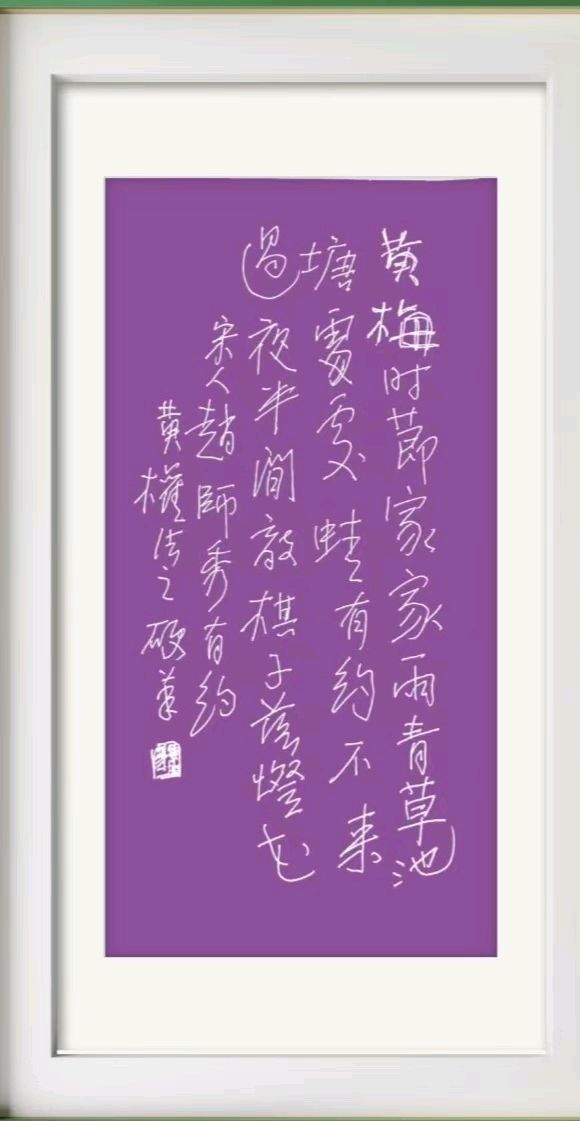 黄梅时節家家雨青草池
塘處處蛙有约不来
過夜半閒敲棋子落燈花
宋人趙師秀有约
黄權法之硬笔